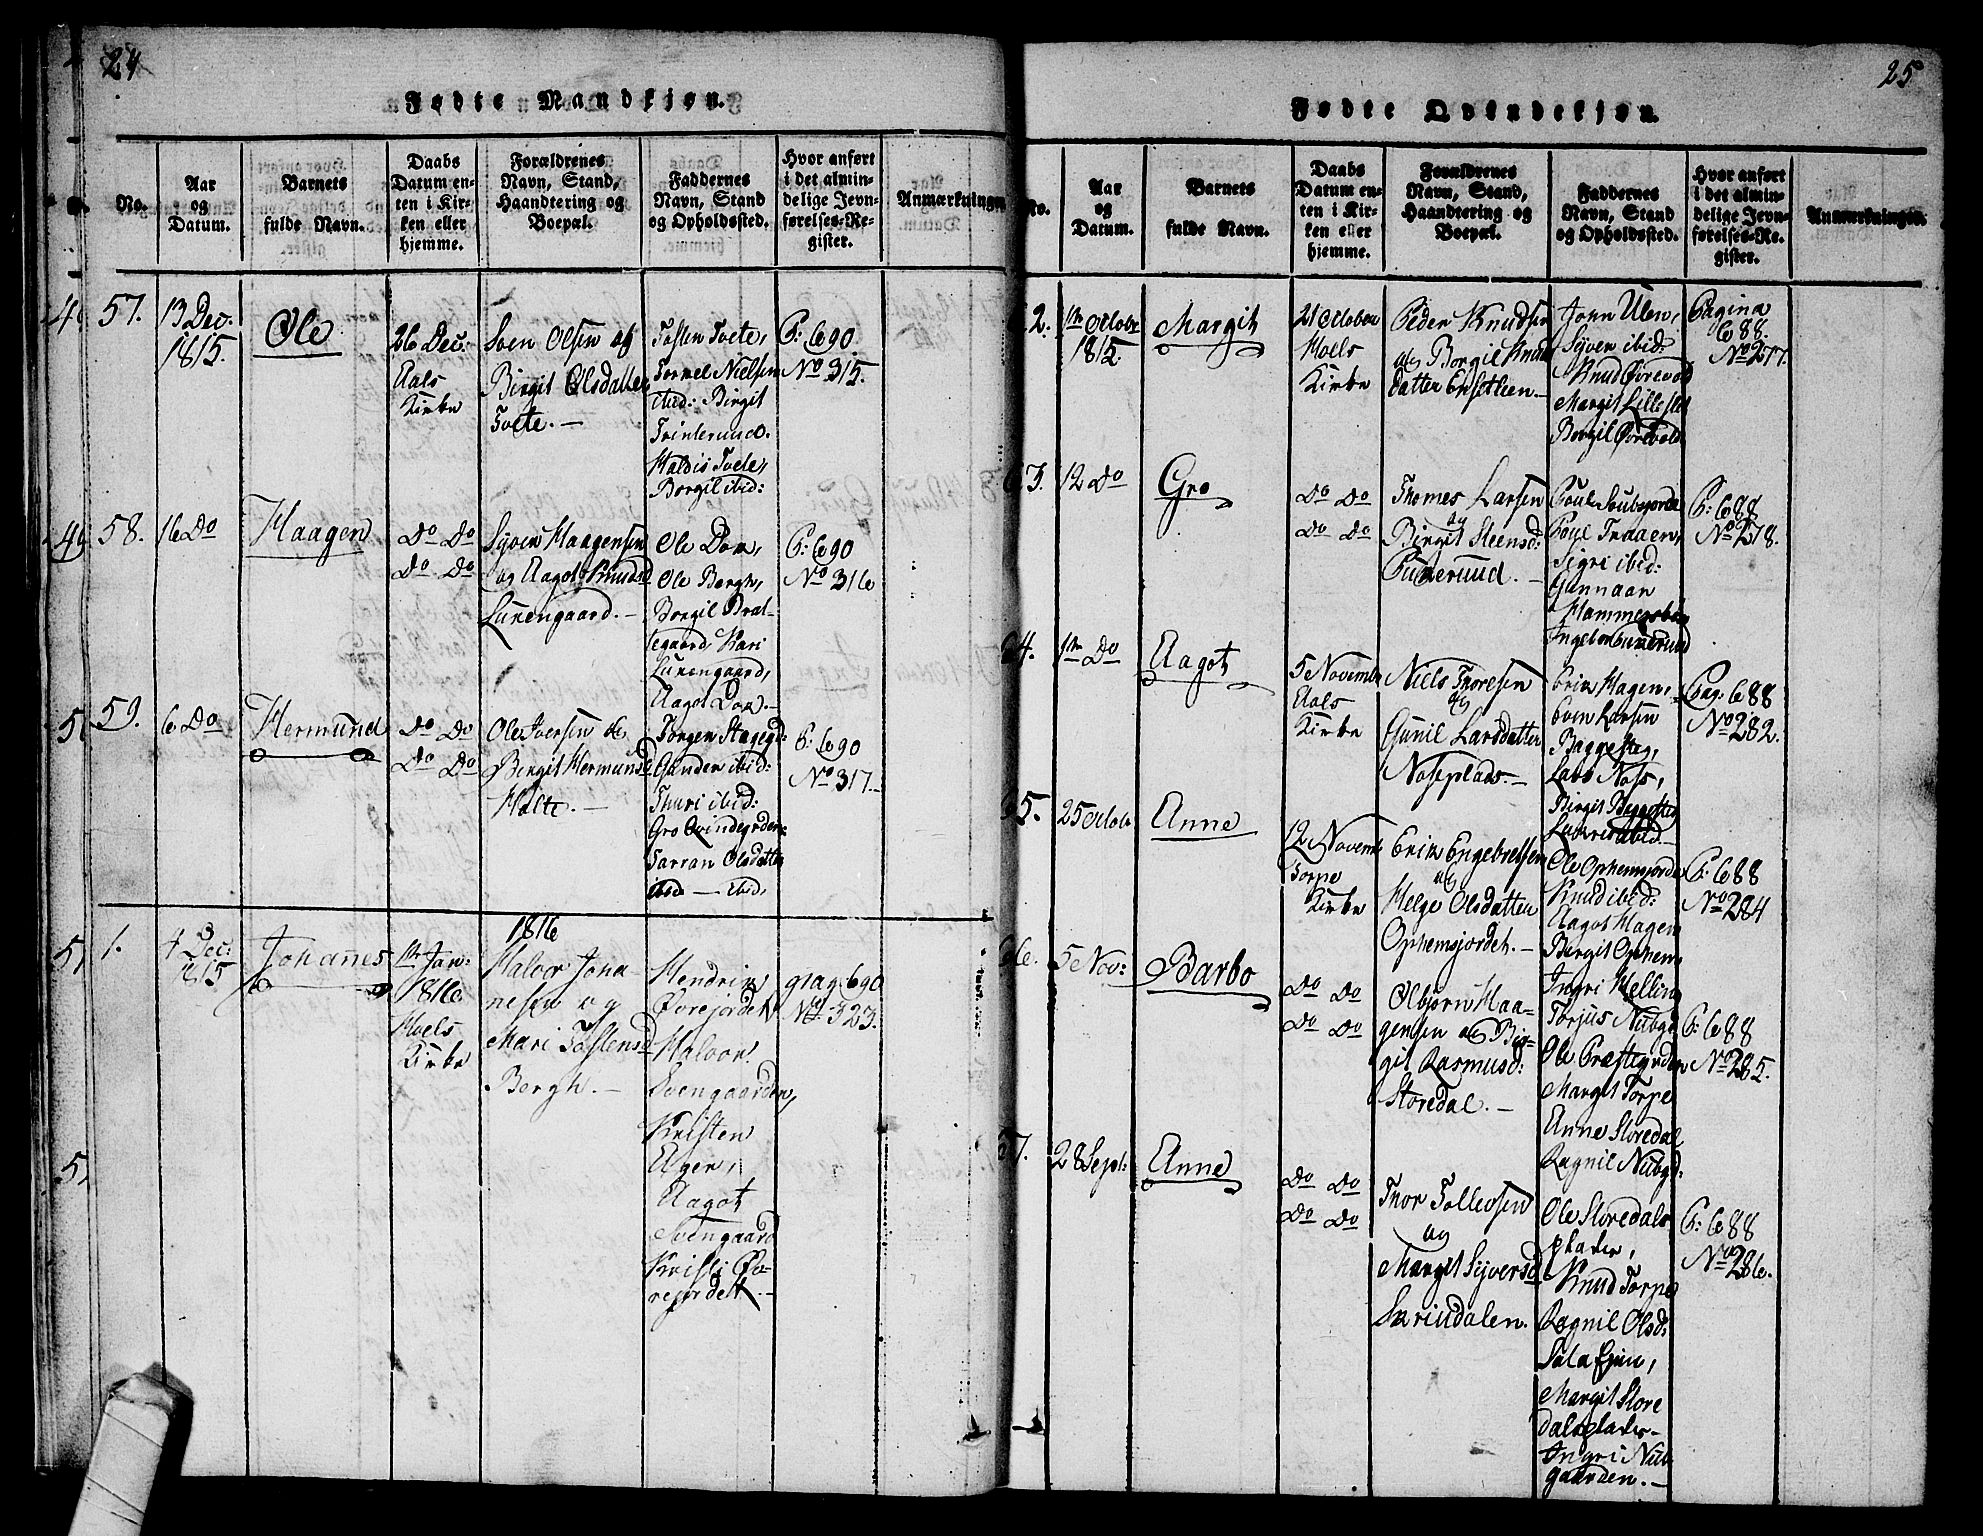 24
Fødte Mandkjøn.
No.
Aar
og
Datum.
Barnets
fulde Navn.
Daabs
Datum en-
ten i Kir-
ken eller
hjemme.
Forældrenes
Navn, Stand,
Haandtering og
Boepæl.
Faddernes
Navn, Stand
og Opholdssted.
Hvor anført
i det almin-
delige Jevn-
førelses-Re-
gister.
Anmærkninger
57.
13 Dec:
1815.
Ole
26 Dec:
Aals
Kirke
Sven Olsen og
Birgit Olsdatter
Tvete. —
Tosten Tvete,
Tormel Nielsen
ibid: Birgit
Trinterud.
Haldis Tvete,
Borgil ibid:
P: 690
No 315.
58.
16 Do
Haagen
Do Do
Do Do
Syver Haagensen
og Aagot Knudsd
Lurengaard. —
Ole Dom,
Ole Bergh,
Borgil Brat-
tegaard, Kari
Lurengaard,
Aagot Dom. —
P: 690
No 316
59.
6 Do
Hermund
Do Do
Do Do
Ole Iversen og
Birgit Hermunsd
Holte. —
Torgen Stagegd
Gunder ibid:
Thuri ibid:
Gro Qvindegrden
Tarran Olsdatter
ibid — ibid.
P: 690
No 317.
1816
1.
4 Dec:
1815
Johannes
1ste Jan:
1816
Hoels
Kirke
Halvor Joha-
nesen og
Mari Tostensd
Bergh. —
Hendrik
Øvrejordet
Halvor
Svengaarden,
Kristen
Ager,
Aagot
Svengaard
Kristi Øv-
rejordet. —
pag 690
No 323.
25
Fødte Qvindekjøn.
No.
Aar
og
Datum.
Barnets
fulde Navn.
Daabs
Datum en-
ten i Kir-
ken eller
hjemme.
Forældrenes
Navn, Stand,
Haandtering og
Boepæl.
Faddernes
Navn, Stand
og Opholdssted.
Hvor anført
i det almin-
delige Jevn-
førelses-Re-
gister.
Anmærkninger.
62.
1ste Octobr
1815.
Margit
21 October
Hoels
Kirke
Peder Knudsen
og Borgil Knud
datter Ensetleen —
John Ulen,
Syver ibid:
Knud Ørevold
Margit Lilleslet
Borgil Ørevold
Pagina
688
No 277.
63.
12 Do
Gro
Do Do
Do Do
Thomes Larsen
og
Birgit Steensd:
Pukerud. —
Poul Soubyorde
Poul Traaen,
Sigri ibid:
Gunnaar
Hammersbøn
Ingebor Pukerud
P: 688
No 278.
64.
1ste Do
Aagot
5 Novembr
Aals
Kirke
Niels Thoresen
og
Gunil Larsdatter
Noseplads. —
Erik Hagen,
Even Larsen
Baggesteg,
Lars Noss,
Birgit Baggesteg
ibid. —
Pag: 688
No 282.
65.
25 Octobr
Anne
12 Novembr
Torpe
Kirke
Erik Engebretsen
og
Helge Olsdatter
Ophemsjordet. —
Ole Ophemsjorde
Knud ibid:
Aagot Hagen
Bergit Ophem
Ingri Helling
P: 688
No 284
66.
5 Nov:
Barbo
Do Do
Do Do
Olbjørn Haa-
gensen og Bir-
git Rasmusd:
Storedal. —
Torjus Nubgd
Ole Præstegrden
Margit Torpe
Anne Storedal
Ragnil Nubgd.
P: 688
No 285.
67.
28 Sept:
Anne
Do Do
Do Do
Thor Tollevsen
og
Margit Syversd
Skrindalen.
Ole Storedals
pladen,
Knud Torpe
Ragnil Olsd:
Margit Store
dalspladen
Ingri Nub-
gaarden. —
P: 688
No 286.